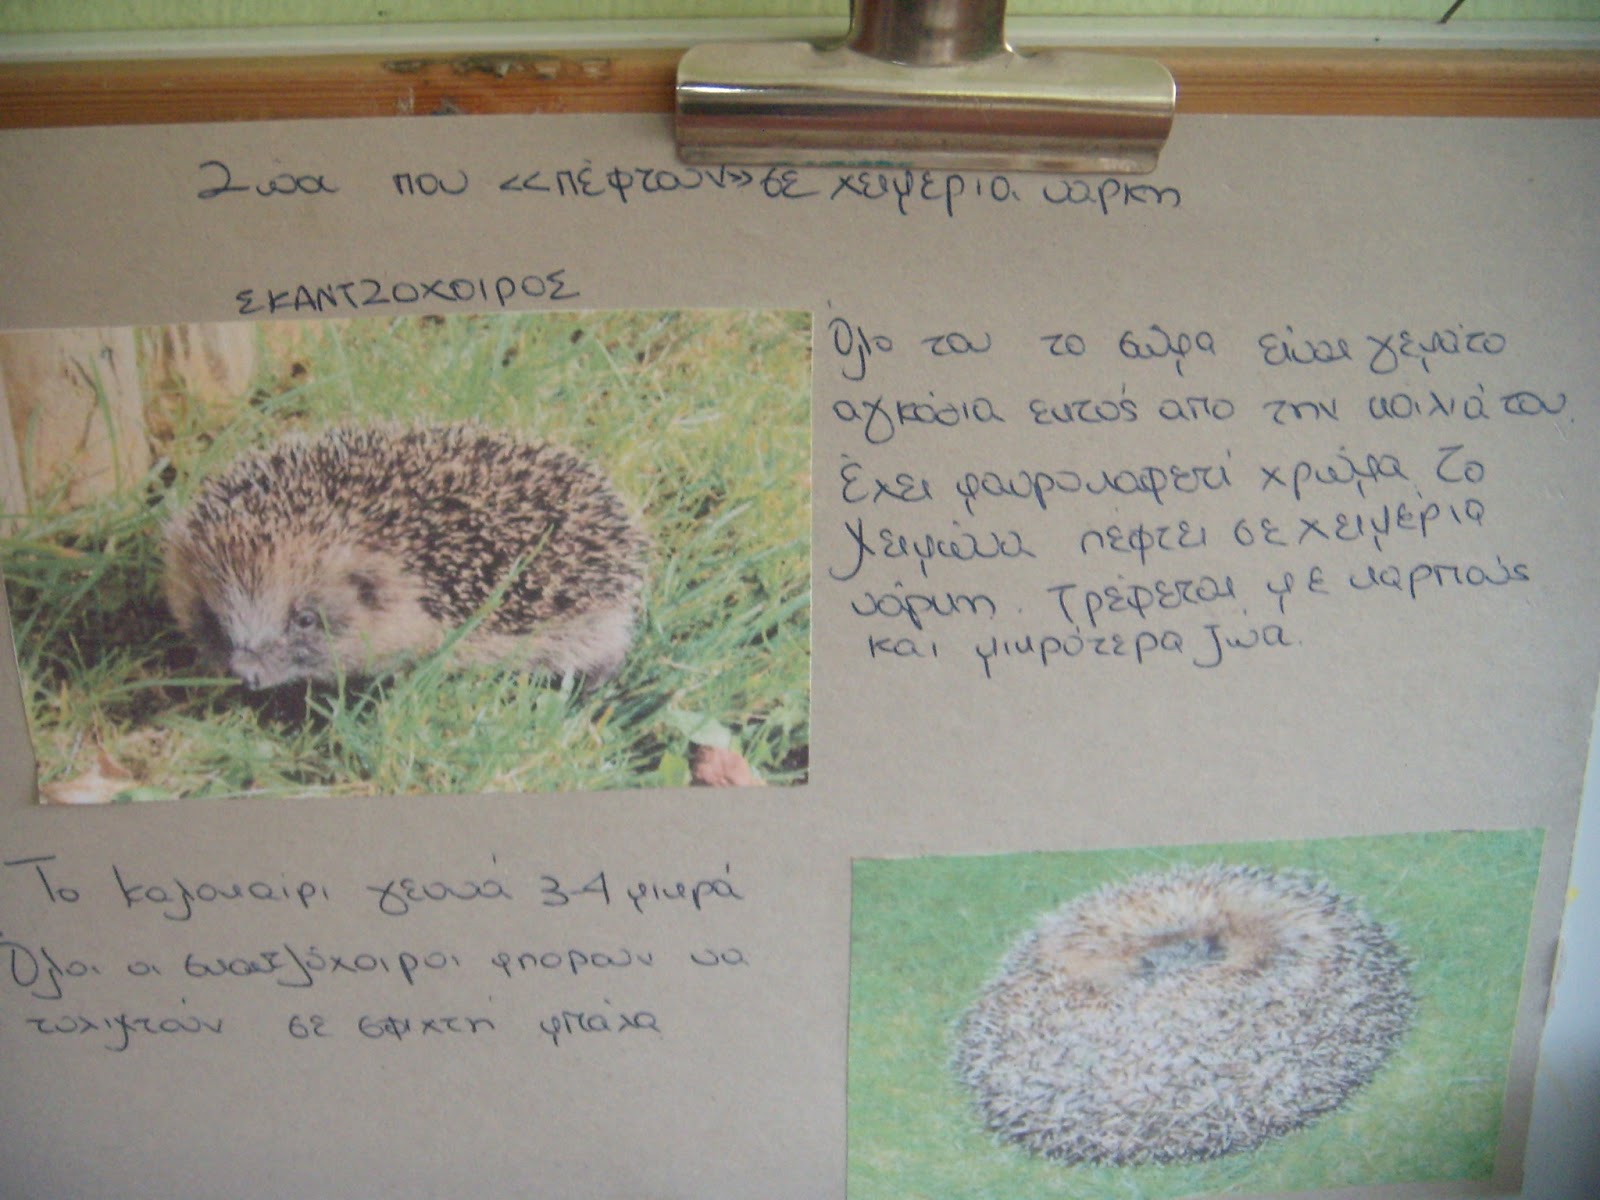 Ζώα που <<πέφτουν>> σε χειμερια ναρκη
ΣΚΑΝΤΖΟΧΟΙΡΟΣ
Όλο του το σώμα είναι γεμάτο
αγκάθια εκτός απο την κοιλιά του.
Έχει μαυροκαφετί χρώμα. Το
χειμώνα πέφτει σε χειμέρια
νάρκη. Τρέφεται με καρπούς
και μικρότερα ζώα.
Το καλοκαίρι γεννά 3-4 μικρά
Όλοι οι σκαντζόχοιροι μπορούν να
τυλιχτούν σε σφιχτή μπάλα